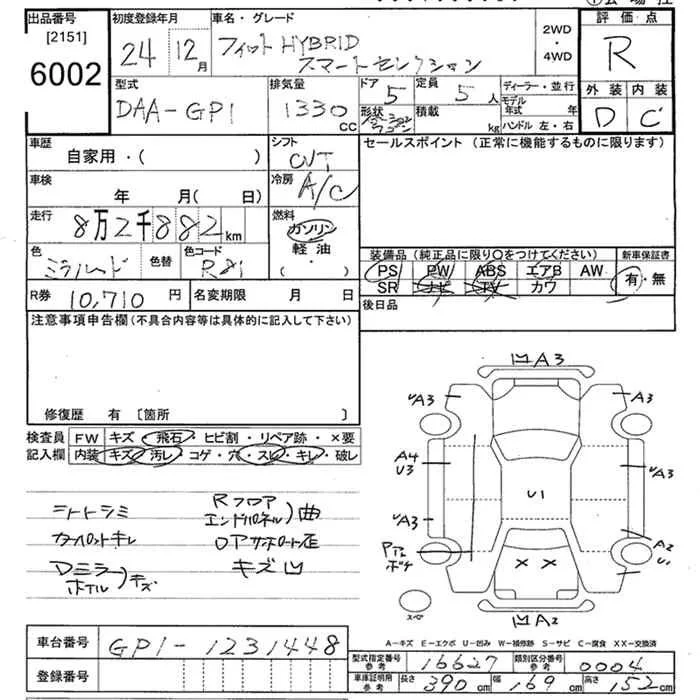 出品番号 [2151] 6002
初度登録年月 24 12月
車名・グレード フィットHYBRID スマートセレクション
2WD・4WD
評価点 R
外装 D 内装 C
型式 DAA-GP1
排気量 1330 CC
ドア 5
形状
定員 5人
積載 kg
ディーラー・並行
モデル年式 年
ハンドル 左・右
車歴 自家用・( )
シフト CVT
セールスポイント (正常に機能するものに限ります)
車検 年 月( 日)
冷房 A/C
走行 8万2千882km
燃料 ガソリン 軽油・( )
色 ミラノレッド 色替 色コード R81
装備品 (純正品に限り○をつけてください) 新車保証書
PS PW ABS エアB AW 有・無
SR ナビ TV カワ
R券 10,710円 名変期限 月 日
後日品
注意事項申告欄 (不具合内容等は具体的に記入して下さい)
修復歴 有 [箇所 ]
検査員記入欄 FW キズ・飛石・ヒビ割・リペア跡・×要
内装 キズ・汚レ・コゲ・穴・スレ・キレ・破レ
シートシミ
カーペットキレ
Dミラー ホイル キズ
Rフロア エンドパネル 曲
ロアサポート歪
キズ凹
凹A3
A3
A3
A4
U3
A3
A3
A3
U1
A2
U1
××
凹A2
スペ
A-キズ E-エクボ U-凹み W-補修跡 S-サビ C-腐食 XX-交換済
車台番号 GP1-1231448
登録番号
型式指定番号 参考 16627 類別区分番号 参考 0004
車庫証明用 参考 長さ 390cm 幅 169cm 高さ 152cm